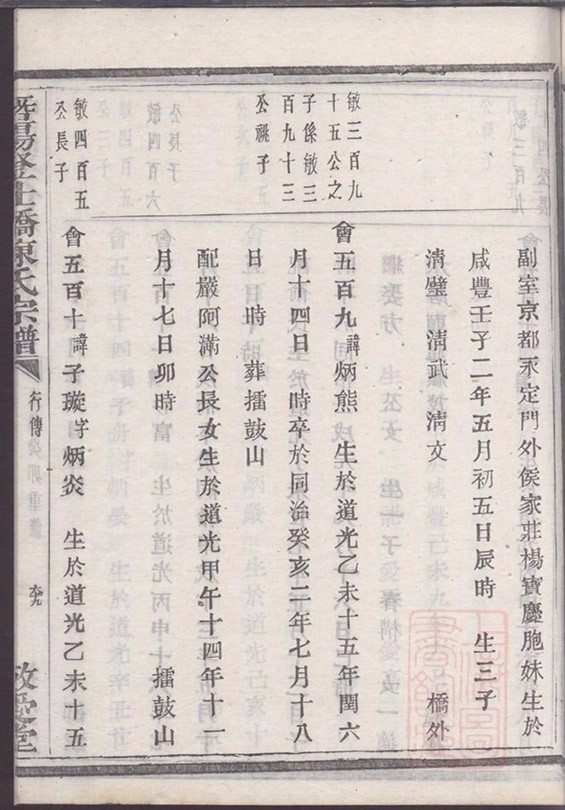 副室京都永定門外侯家莊楊寶慶胞妹生於
咸豐壬子二年五月初五日辰時 生三子
清璧 清武 清文 橋外
敏三百九
十五公之
子係敏三
百九十三
公祧子
會五百九諱炳熊 生於道光乙未十五年閏六
月十四日 時卒於同治癸亥二年七月十八
日 時 葬擂鼓山
配嚴阿滿公長女生於道光甲午十四年十一
月十七日卯時 擂鼓山
敏四百五
公長子
會五百十諱子璇字炳炎 生於道光乙未十五
暨陽 橋陳氏宗譜
行傳